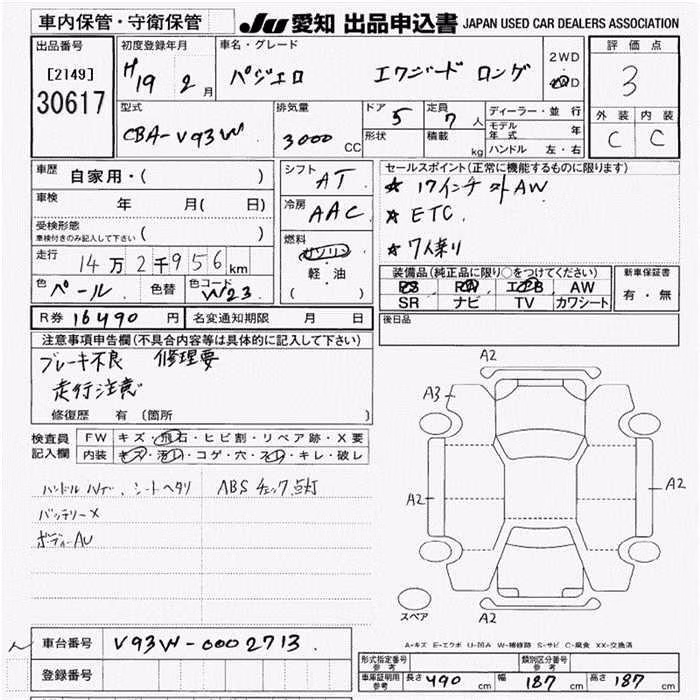 車内保管・守衛保管
JU 愛知 出品申込書 JAPAN USED CAR DEALERS ASSOCIATION
出品番号
[2149]
30617
初度登録年月
H19 2 月
車名・グレード
パジェロ エクシード ロング
2WD
4WD
評価点
3
外装 内装
C C
型式
CBA-V93W
排気量
3000 CC
ドア 5
形状
定員 7 人
積載 kg
ディーラー・並行
モデル年式 年
ハンドル 左・右
車歴 自家用・( )
車検 年 月( 日)
受検形態
車検付きのみ記入して下さい ( )
走行 14万2千956 km
色 パール 色替 色コード W23
シフト AT
冷房 AAC
燃料
ガソリン
軽・油
( )
セールスポイント(正常に機能するものに限ります)
★ 17インチ AW
★ ETC
★ 7人乗り
装備品(純正品に限り○をつけてください)
PS PW エアB AW
SR ナビ TV カワシート
新車保証書
有・無
R券 16490 円 名変通知期限 月 日
後日品
注意事項申告欄(不具合内容等は具体的に記入して下さい)
ブレーキ不良 修理要
走行注意
修復歴 有 (箇所 )
検査員記入欄
FW キズ・飛石・ヒビ割・リペア跡・X要
内装 キズ・汚レ・コゲ・穴・スレ・キレ・破レ
ハンドルハゲ、シートヘタリ ABSチェック点灯
バッテリーX
ボディーAU
A2
A3
A2
A2
A2
スペア
A・キズ E・エクボ U・凹み W・補修跡 S・サビ C・腐食 XX・交換済
車台番号 V93W-0002713
登録番号
形式指定番号 参考
類別区分番号 参考
車庫証明用 参考 長さ 490 cm 幅 187 cm 高さ 187 cm